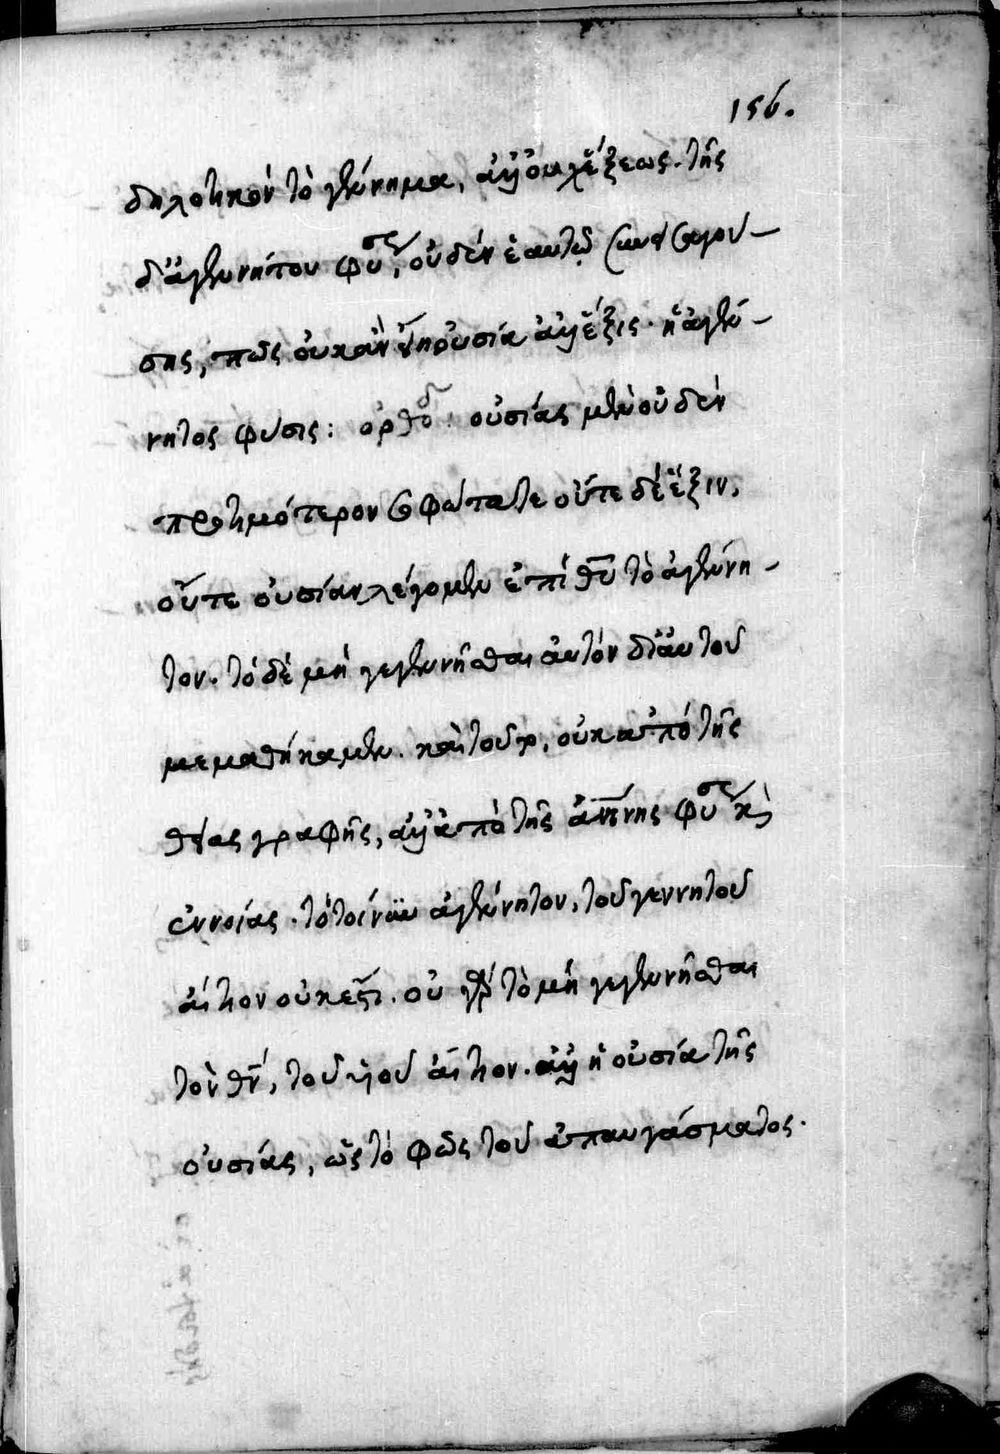 156.
δηλοτικὸν τὸ γέννημα, ἀλλ' οὐχ ἕξεως. τῆς
δ' ἀγεννήτου φύσ, οὐδὲν ἑαυτῷ συνεισαγού-
σης, πῶς οὐκ ἂν εἴη οὐσία ἀλλ' ἕξις. ἡ ἀγέν-
νητος φύσις: ὀρθοδ: οὐσίας μὲν οὐδὲν
προτιμότερον οὔτε δὲ ἕξιν,
οὔτε οὐσίαν λέγομεν ἐπὶ θυ τὸ ἀγέννη-
τον. τὸ δὲ μὴ γεγεννῆσθαι αὐτὸν δι' αὐτοῦ
μεμαθήκαμεν. καὶ τοῦτο, οὐκ ἀπὸ τῆς
θείας γραφῆς, ἀλλ' ἀπὸ τῆς φύσ κὶ
ἐννοίας. τὸ τοίνυν ἀγέννητον, τοῦ γεννητοῦ
αἴτιον οὐκ ἔστι. οὐ γὰρ τὸ μὴ γεγεννῆσθαι
τὸν θν, τοῦ υἱοῦ αἴτιον. ἀλλ' ἡ οὐσία τῆς
οὐσίας, ὡς τὸ φῶς τοῦ ἀπαυγάσματος.